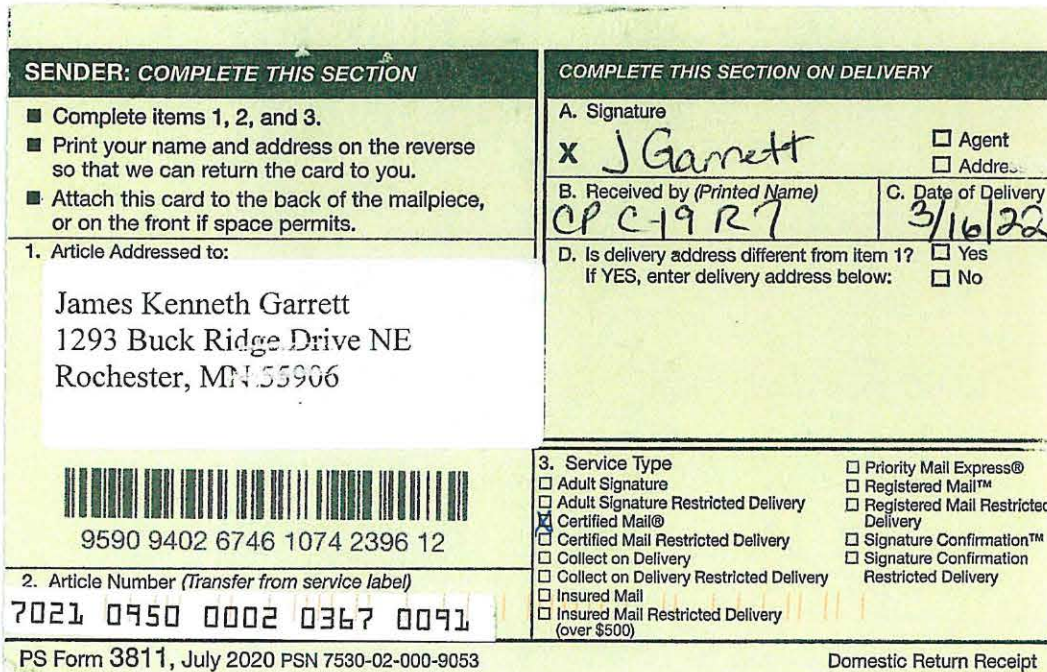 SENDER: COMPLETE THIS SECTION
■ Complete items 1, 2, and 3.
■ Print your name and address on the reverse
so that we can return the card to you.
■ Attach this card to the back of the mailpiece,
or on the front if space permits.
1. Article Addressed to:
James Kenneth Garrett
1293 Buck Ridge Drive NE
Rochester, MN 55906
9590 9402 6746 1074 2396 12
2. Article Number (Transfer from service label)
7021 0950 0002 0367 0091
PS Form 3811, July 2020 PSN 7530-02-000-9053
COMPLETE THIS SECTION ON DELIVERY
A. Signature
X J Garrett
☐ Agent
☐ Addre
B. Received by (Printed Name)
CP C-19 R7
C. Date of Delivery
3/16/22
D. Is delivery address different from item 1? ☐ Yes
If YES, enter delivery address below: ☐ No
3. Service Type
☐ Adult Signature
☐ Adult Signature Restricted Delivery
☒ Certified Mail®
☐ Certified Mail Restricted Delivery
☐ Collect on Delivery
☐ Collect on Delivery Restricted Delivery
☐ Insured Mail
☐ Insured Mail Restricted Delivery
(over $500)
☐ Priority Mail Express®
☐ Registered Mail™
☐ Registered Mail Restricted
Delivery
☐ Signature Confirmation™
☐ Signature Confirmation
Restricted Delivery
Domestic Return Receipt